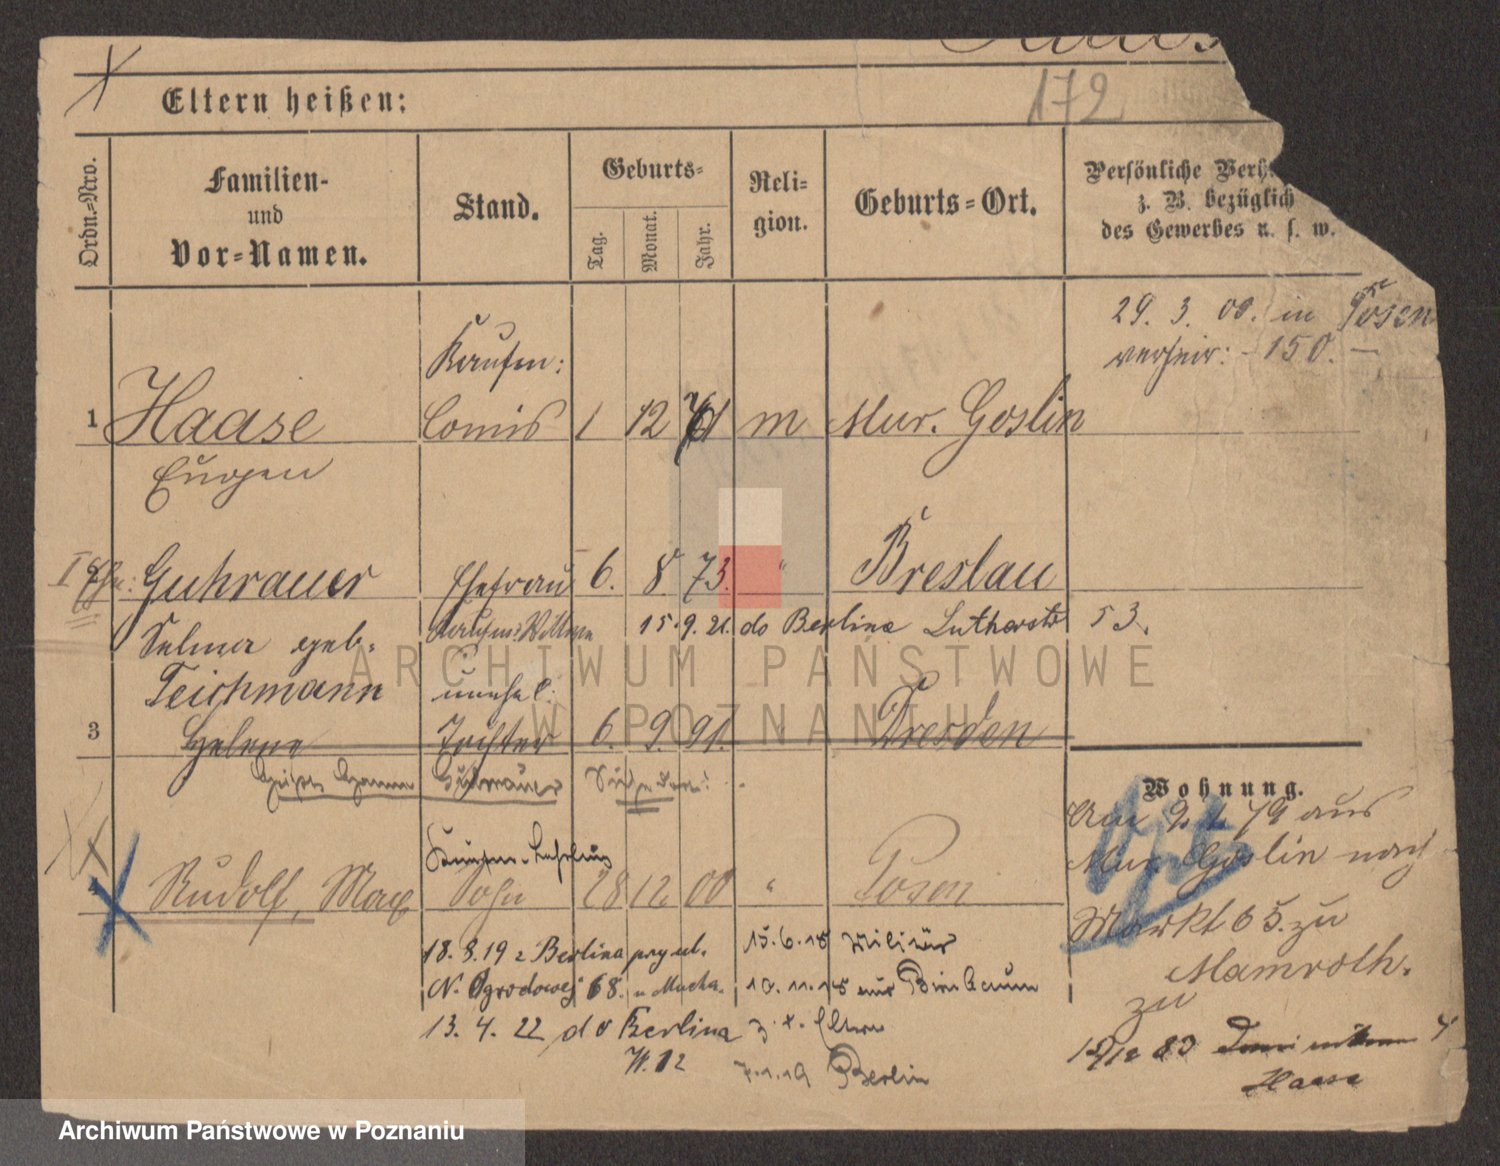 172
Eltern heißen:
Ordn.-Nro.
Familien-
und
Vor-Namen.
Stand.
Geburts-
Tag.
Monat.
Jahr.
Reli-
gion.
Geburts-Ort.
Persönliche Verh
z. B. bezüglich
des Gewerbes u. s. w.
29. 3. 00. in Posen
verheir: - 150. -
Kaufm:
1 Haase Comis 1 12 71 m Mur. Goslin
Eugen
Guhrauer Ehefrau 6. 8 73. " Breslau
15.9.21. do Berlina Lutherstr 53.
Selma geb.
Teichmann unehel:
3 Helene Tochter 6. 9. 91. Dresden
Guhrauer
Wohnung.
Am 2 79 aus
Mur. Goslin nach
Kaufm. Lehrling
Rudolf, Max Sohn 28 12 00 " Posen
Markt 65. zu
Mamroth.
18. 8. 19 z Berlina
15.6.18 Militär
N. Ogrodowej 68. u Mucha.
10.11.18 aus Birnbaum
zu
13. 4. 22 do Berlina z. d. Eltern
W. 12
7.1.19 Berlin
83
Haase
ARCHIWUM PAŃSTWOWE
W POZNANIU
Archiwum Państwowe w Poznaniu